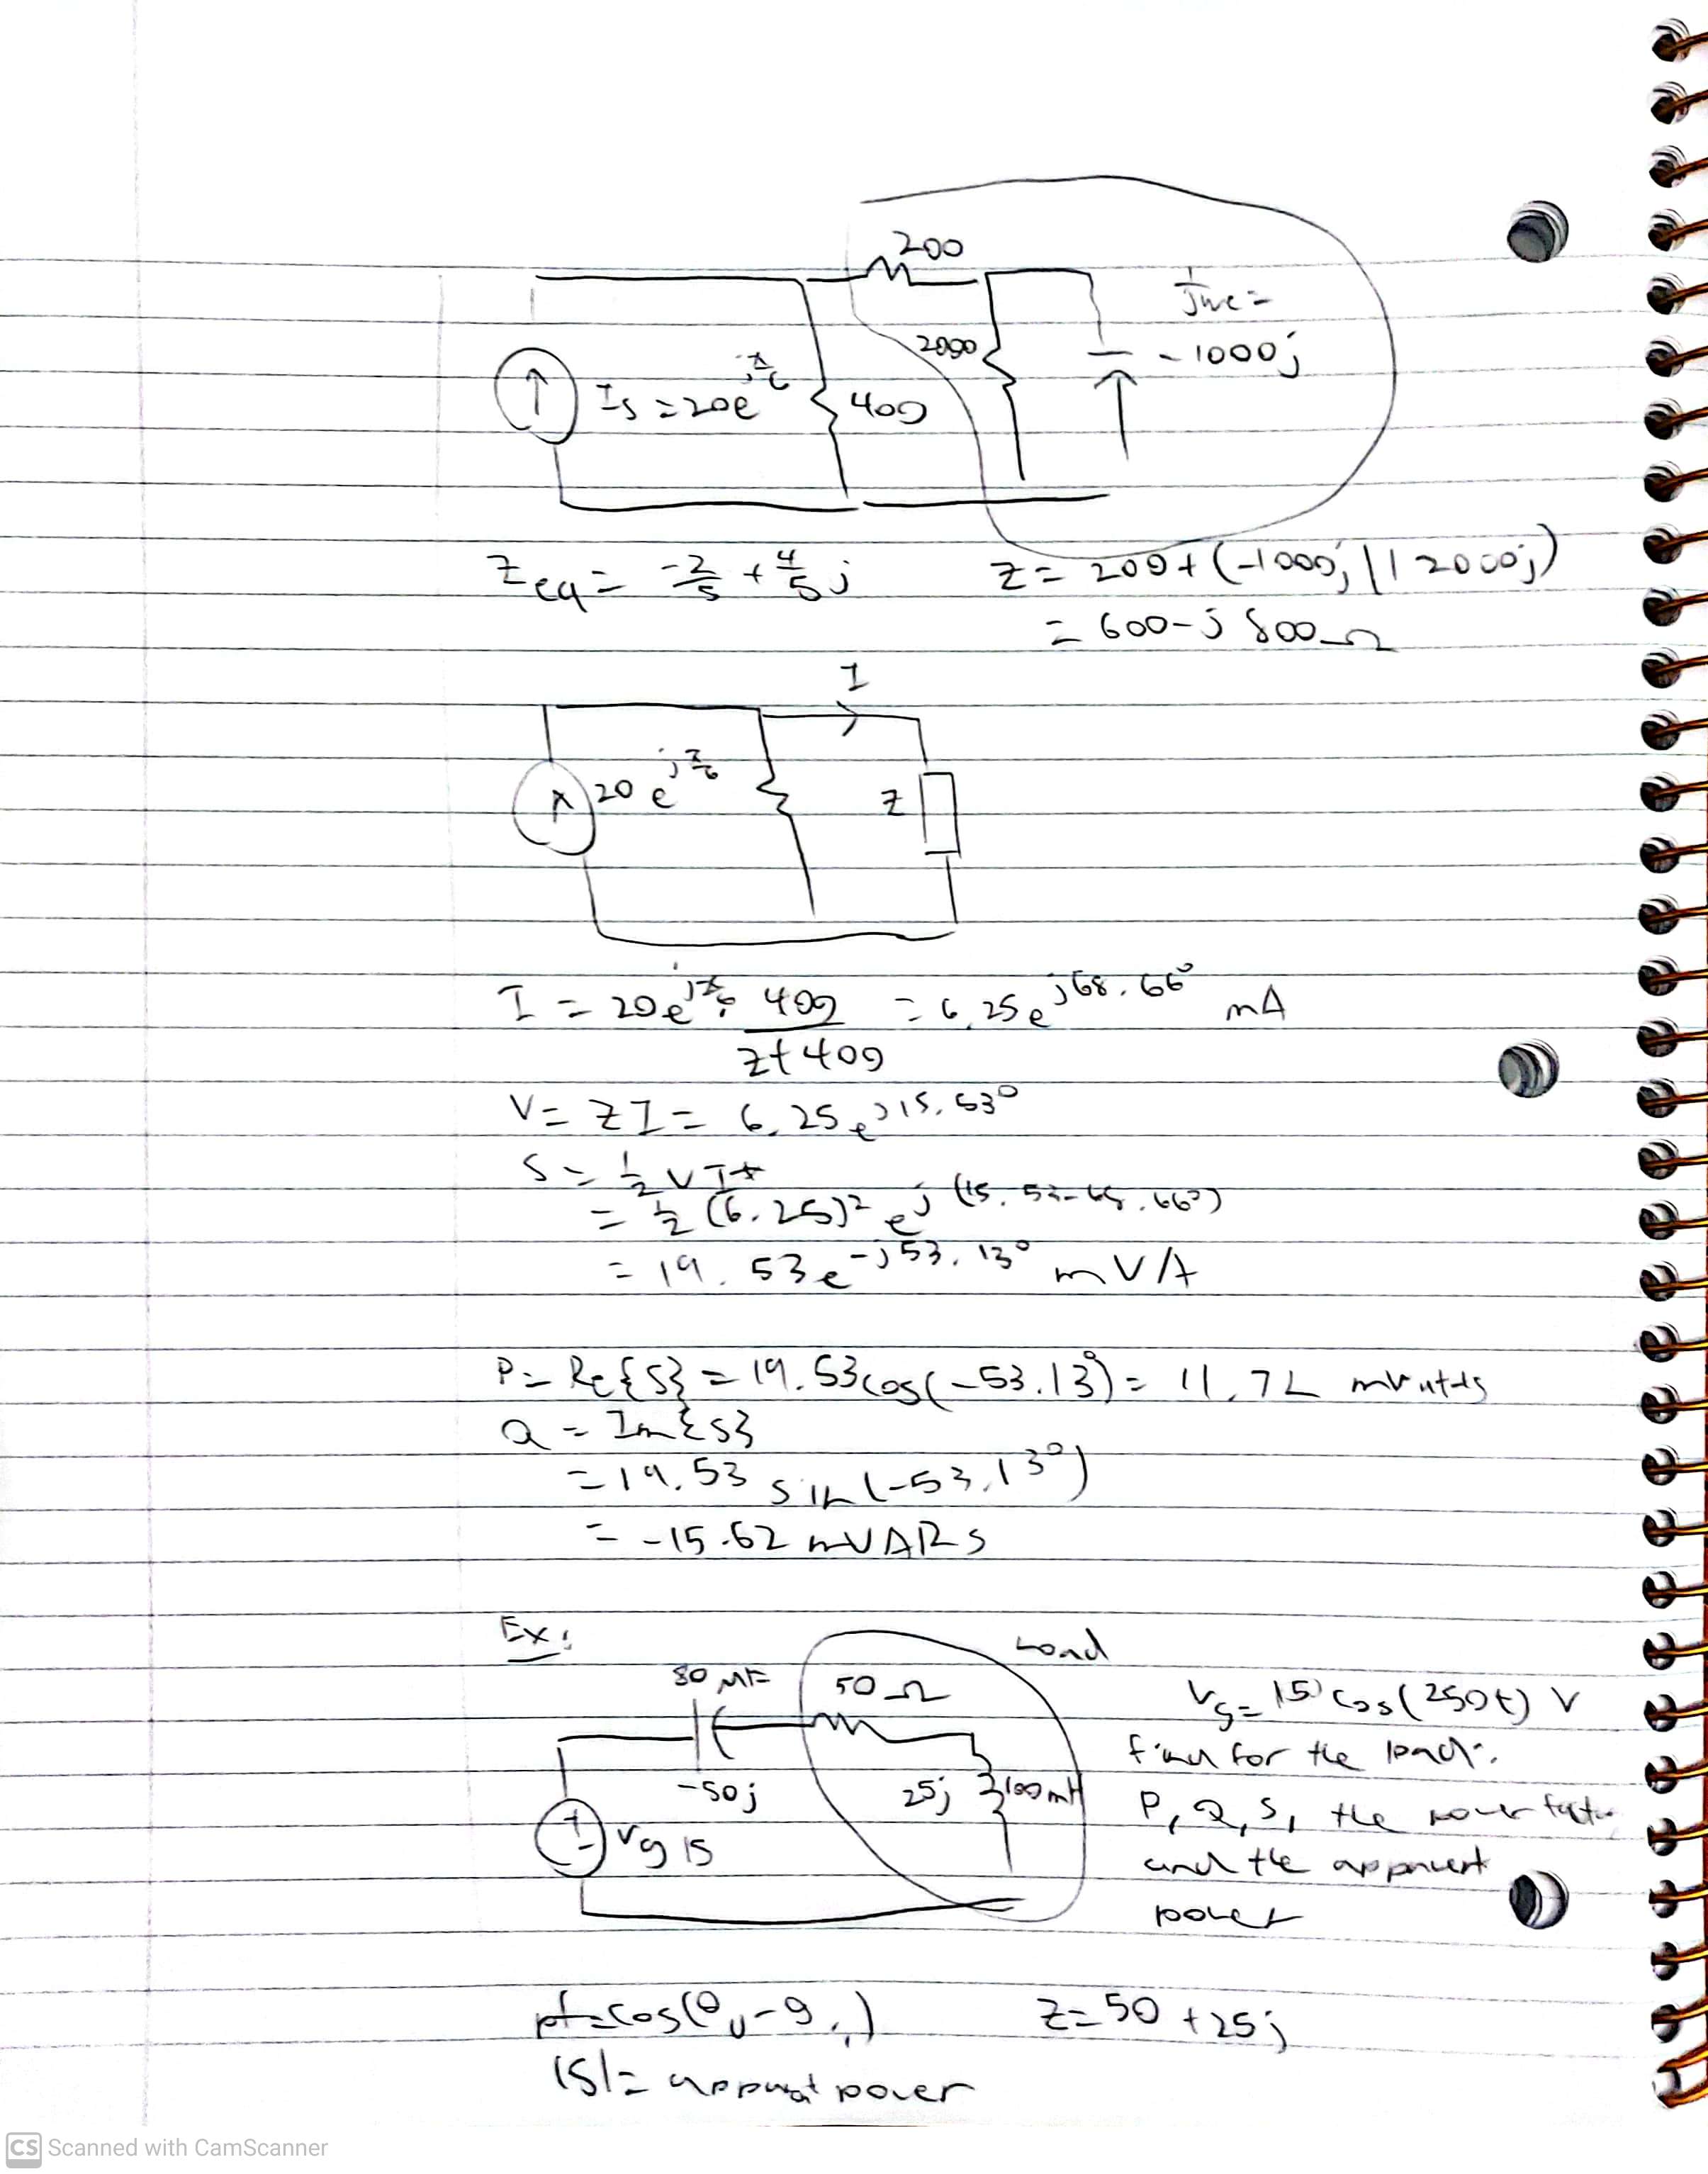 200
1/jwc =
2000
- 1000j
Is = 20e^jπ/6
400
Zeq = -2/5 + 4/5 j
Z = 200 + (-1000j || 2000j)
= 600 - j 800 Ω
I
20 e^jπ/6
Z
I = 20e^jπ/6 · 400/(Z+400) = 6.25e^j68.66° mA
V = ZI = 6.25e^j15.53°
S = 1/2 VI*
= 1/2 (6.25)² e^j(15.53-68.66°)
= 19.53e^-j53.13° mVA
P = Re{S} = 19.53cos(-53.13°) = 11.72 mwatts
Q = Im{S}
= 19.53 sin(-53.13°)
= -15.62 mVARs
Ex:
Load
80 MF
50 Ω
Vg = 15 cos(250t) V
find for the load:
-50j
25j
100mH
P, Q, S, the power factor
Vg 15
and the apparent
power
pf = cos(θv - θi)
Z = 50 + 25j
|S| = apparent power
CS Scanned with CamScanner